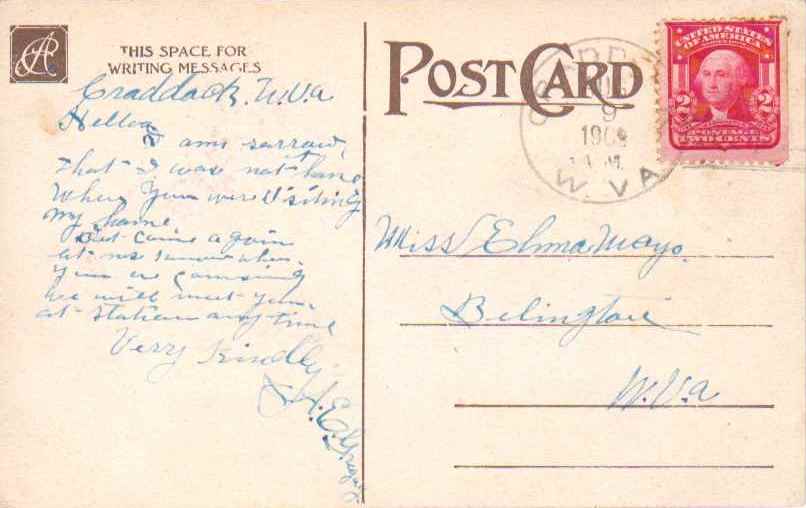 THIS SPACE FOR
WRITING MESSAGES
POST CARD
UNITED STATES
OF AMERICA
2 2
POSTAGE
TWO CENTS
9
190
W. VA
Craddock, W.Va
Hello
I am sarrow,
that I was not hame
When you were Visiting
my hame
But come again
let us know when
you are comming
we will meet you
at station any time
Very Kindly
H. E.
Miss Elma Mayo.
Belington
W.Va